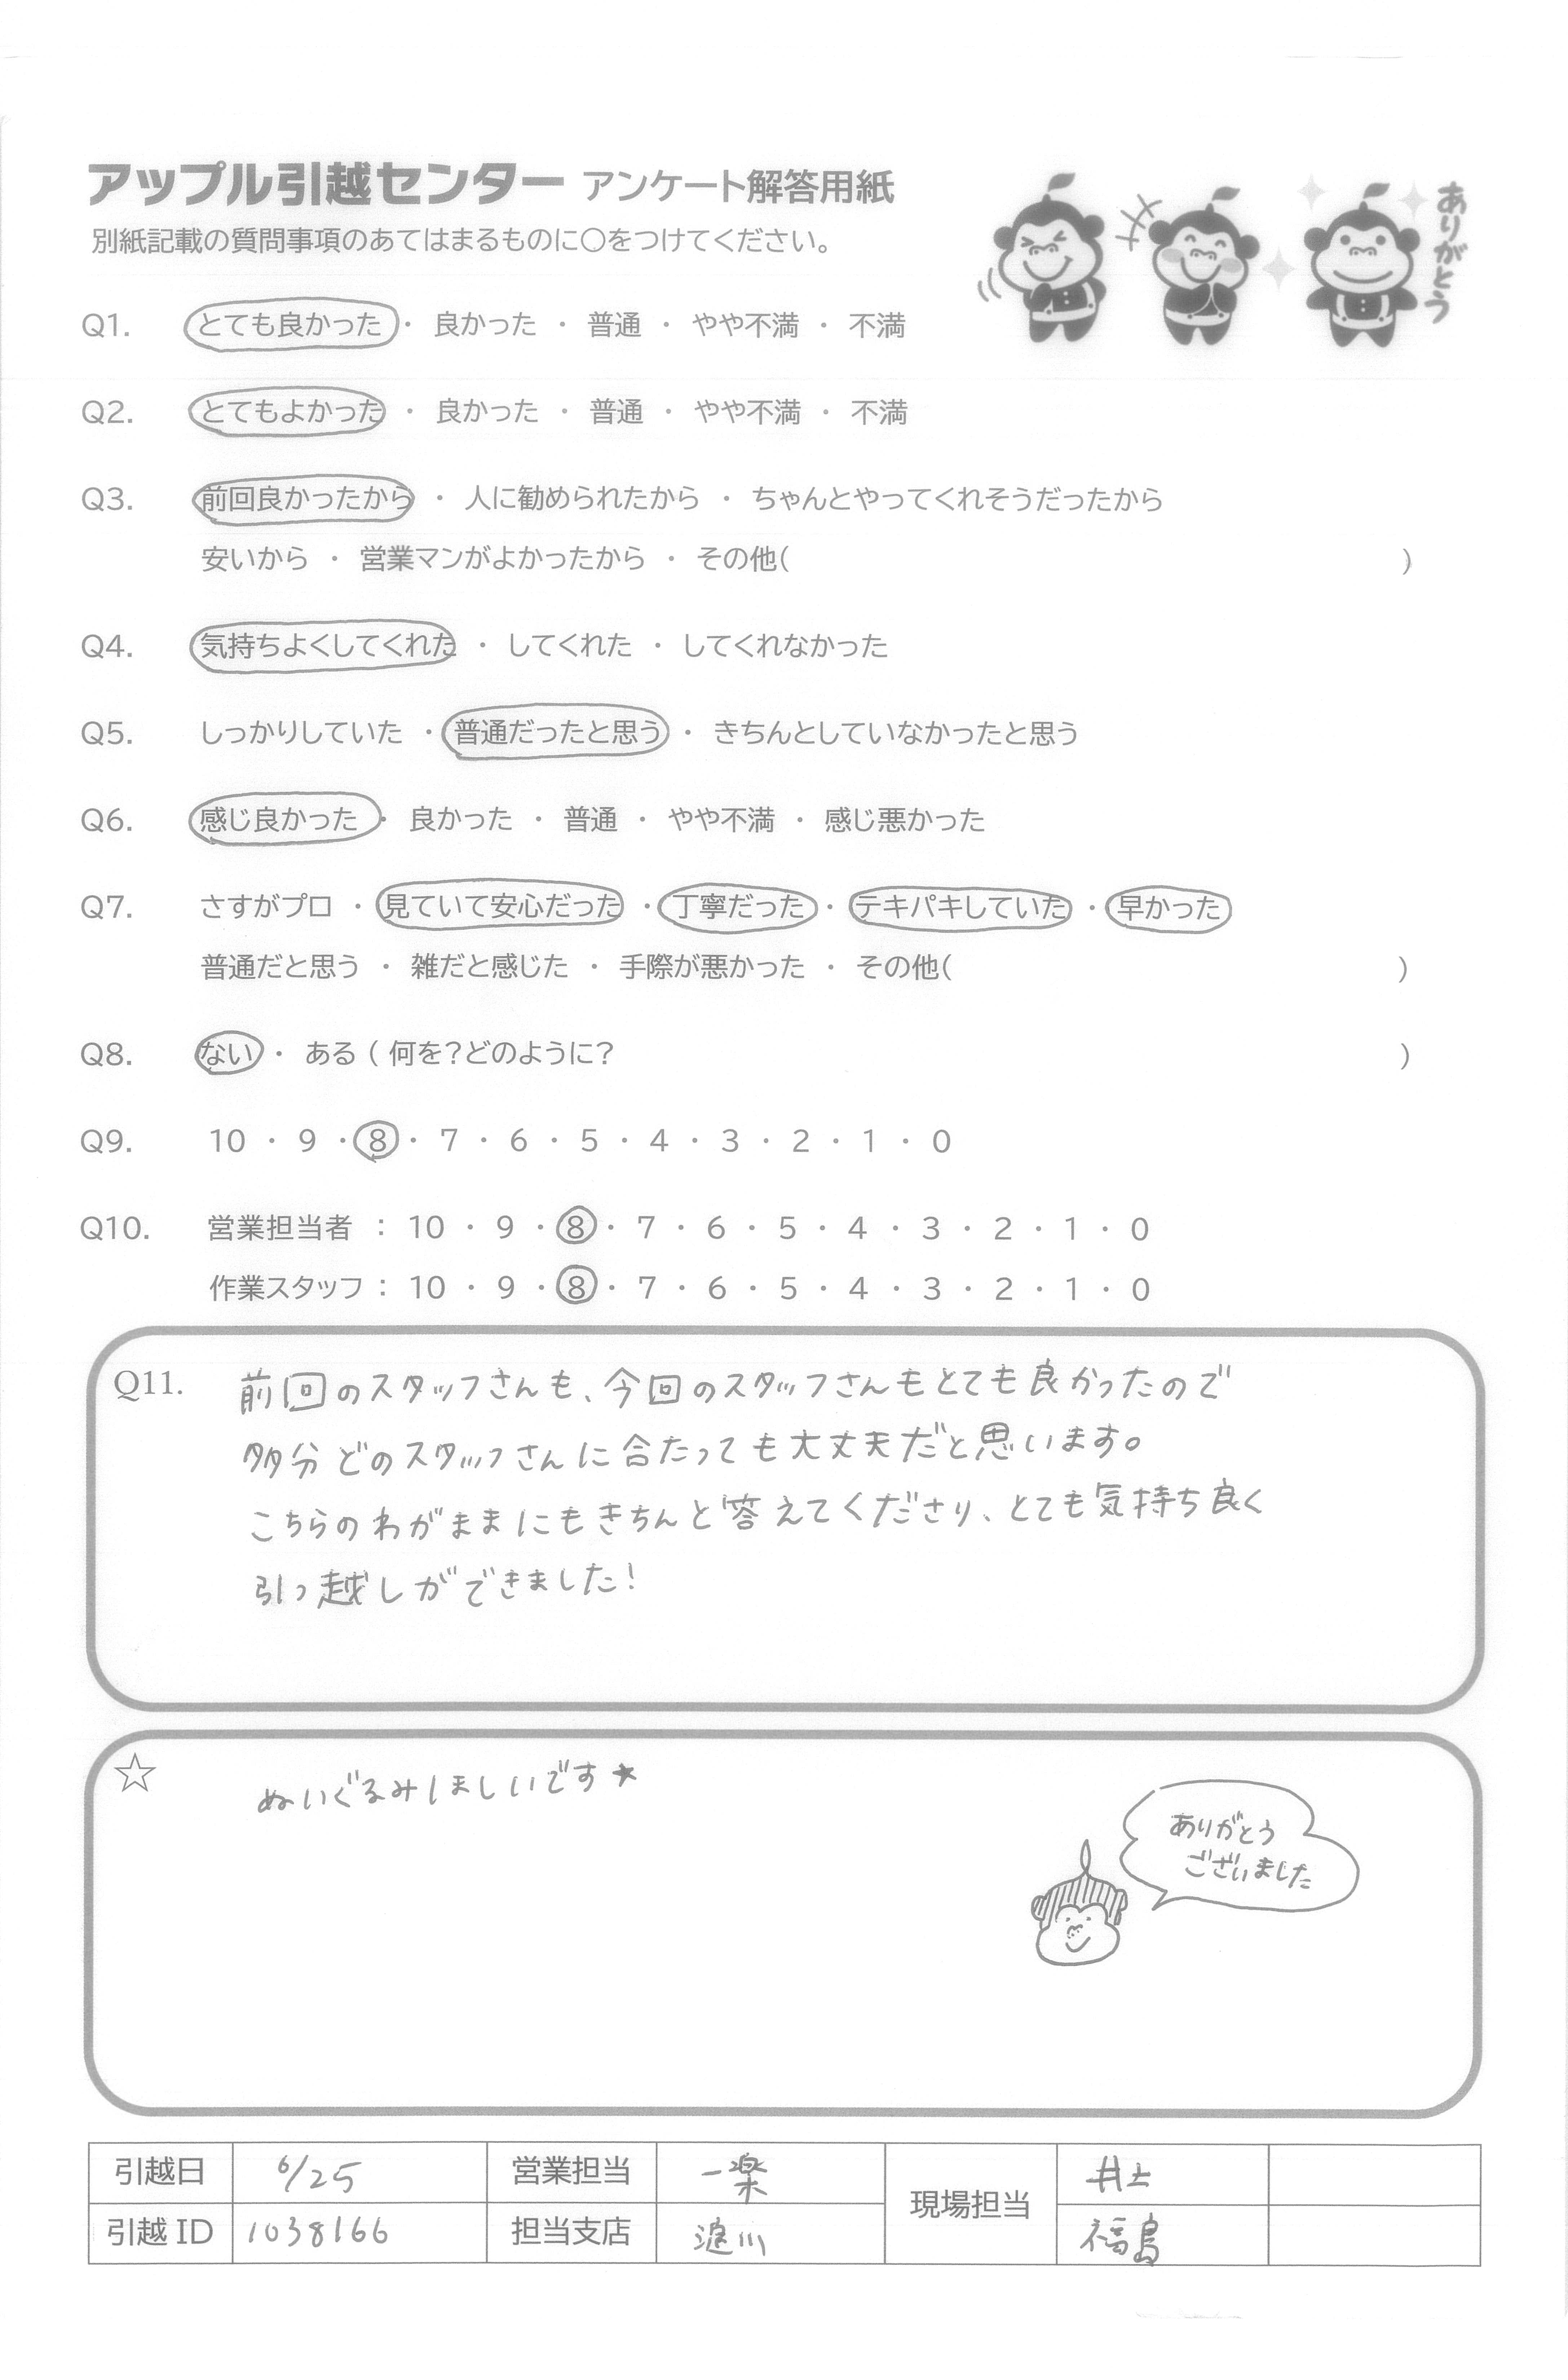 アップル引越センター アンケート解答用紙
別紙記載の質問事項のあてはまるものに〇をつけてください。
ありがとう
Q1. とても良かった ・ 良かった ・ 普通 ・ やや不満 ・ 不満
Q2. とてもよかった ・ 良かった ・ 普通 ・ やや不満 ・ 不満
Q3. 前回良かったから ・ 人に勧められたから ・ ちゃんとやってくれそうだったから
安いから ・ 営業マンがよかったから ・ その他( )
Q4. 気持ちよくしてくれた ・ してくれた ・ してくれなかった
Q5. しっかりしていた ・ 普通だったと思う ・ きちんとしていなかったと思う
Q6. 感じ良かった ・ 良かった ・ 普通 ・ やや不満 ・ 感じ悪かった
Q7. さすがプロ ・ 見ていて安心だった ・ 丁寧だった ・ テキパキしていた ・ 早かった
普通だと思う ・ 雑だと感じた ・ 手際が悪かった ・ その他( )
Q8. ない ・ ある ( 何を?どのように? )
Q9. 10 ・ 9 ・ 8 ・ 7 ・ 6 ・ 5 ・ 4 ・ 3 ・ 2 ・ 1 ・ 0
Q10. 営業担当者 : 10 ・ 9 ・ 8 ・ 7 ・ 6 ・ 5 ・ 4 ・ 3 ・ 2 ・ 1 ・ 0
作業スタッフ : 10 ・ 9 ・ 8 ・ 7 ・ 6 ・ 5 ・ 4 ・ 3 ・ 2 ・ 1 ・ 0
Q11. 前回のスタッフさんも、今回のスタッフさんもとても良かったので
多分どのスタッフさんに合たっても大丈夫だと思います。
こちらのわがままにもきちんと答えてくださり、とても気持ち良く
引っ越しができました!
☆ ぬいぐるみほしいです★
ありがとう
ございました
引越日 6/25 営業担当 一楽 現場担当 井上
引越 ID 1038166 担当支店 淀川 福島